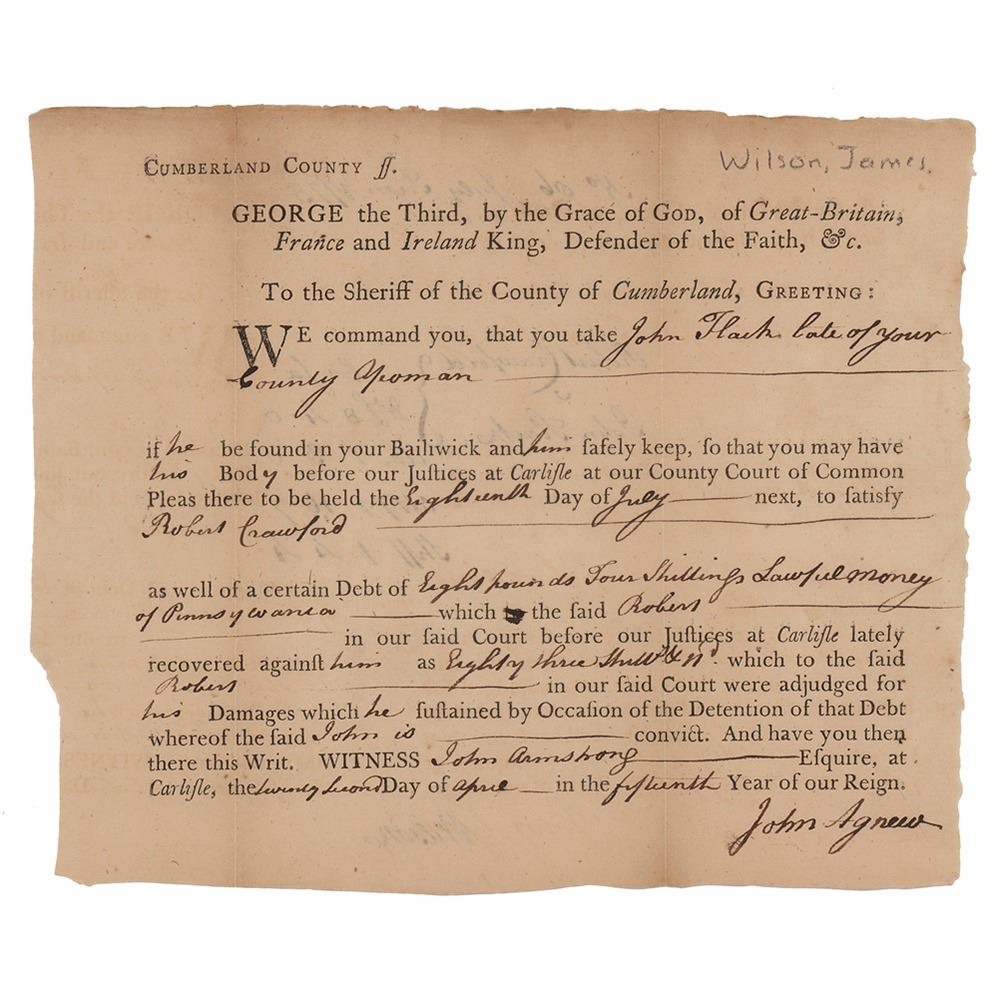 CUMBERLAND COUNTY ſſ.
Wilson, James.
GEORGE the Third, by the Grace of GOD, of Great-Britain,
France and Ireland King, Defender of the Faith, &c.
To the Sheriff of the County of Cumberland, GREETING:
WE command you, that you take John Flack late of your
County Yeoman
if he be found in your Bailiwick and him ſafely keep, ſo that you may have
his Body before our Juſtices at Carliſle at our County Court of Common
Pleas there to be held the Eighteenth Day of July next, to ſatisfy
Robert Crawford
as well of a certain Debt of Eight pounds Four Shillings Lawful money
of Pennsylvania which the ſaid Robert
in our ſaid Court before our Juſtices at Carliſle lately
recovered againſt him as Eighty three Shills & 11d. which to the ſaid
Robert in our ſaid Court were adjudged for
his Damages which he ſuſtained by Occaſion of the Detention of that Debt
whereof the ſaid John is convict. And have you then
there this Writ. WITNESS John Armstrong Eſquire, at
Carliſle, the twenty Second Day of April in the fifteenth Year of our Reign.
John Agnew